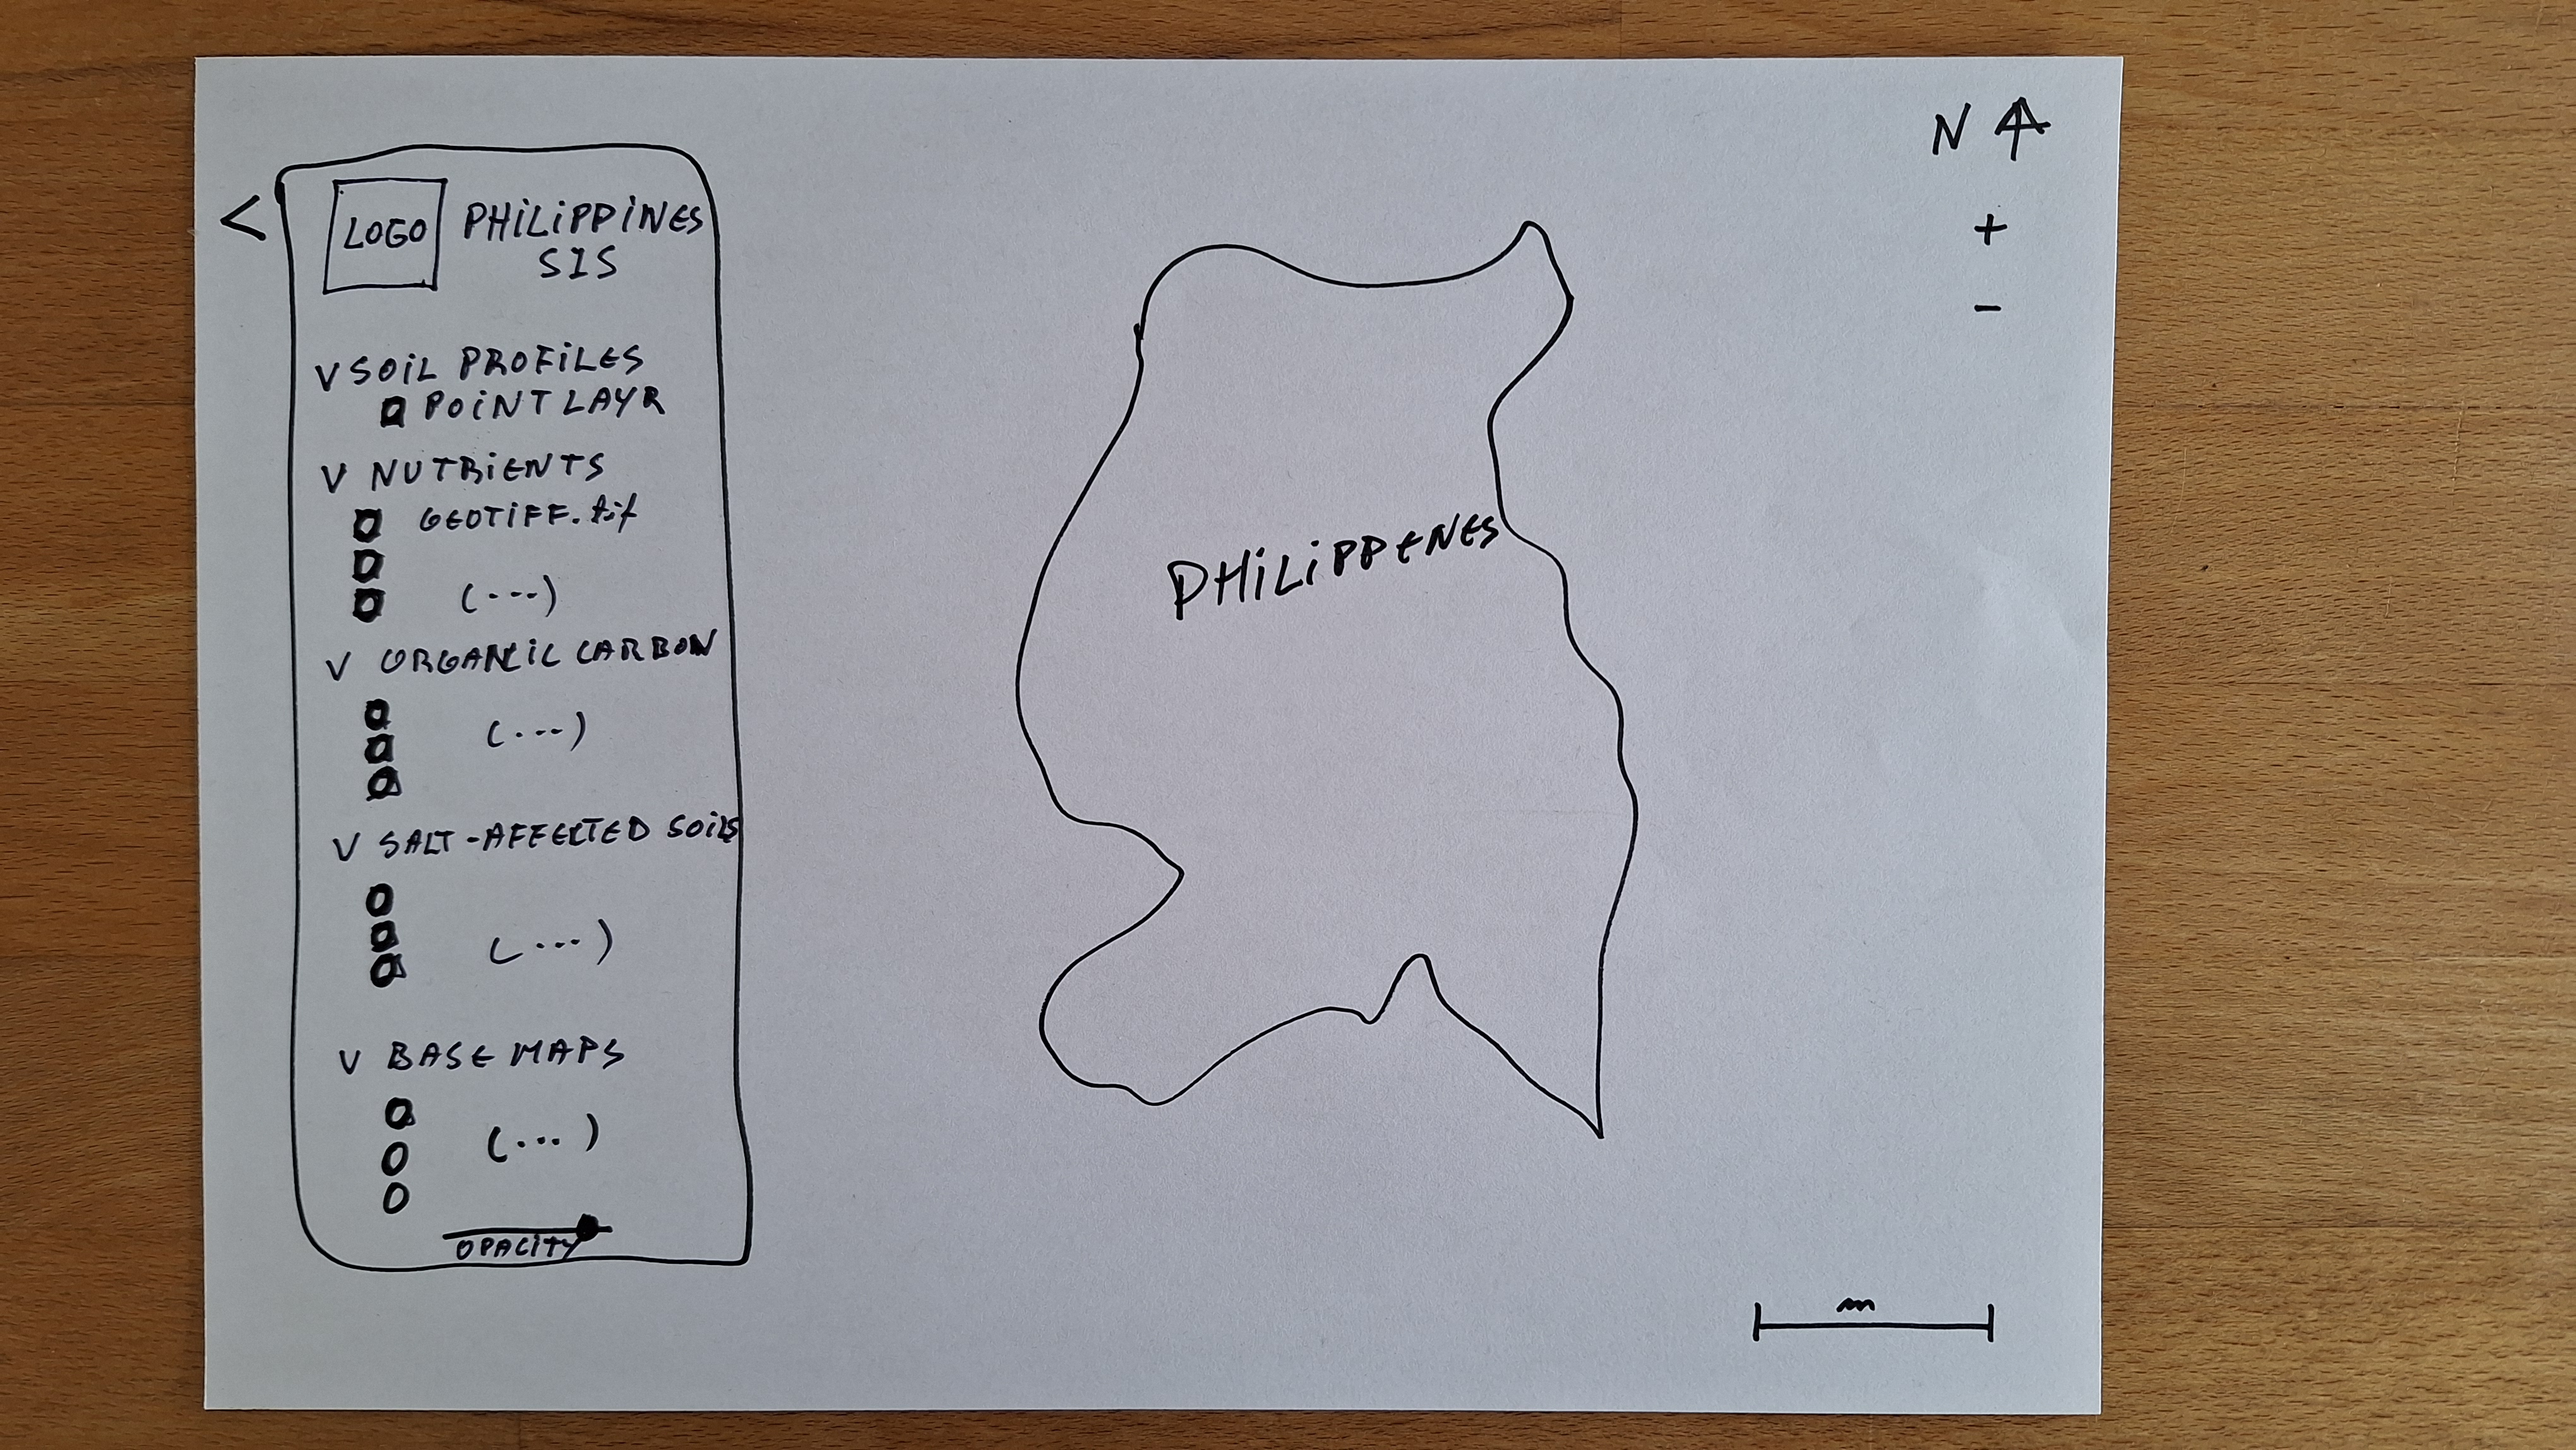 <
LOGO
PHILIPPINES
SIS
V SOIL PROFILES
POINT LAYR
V NUTRIENTS
GEOTIFF.tif
(...)
V ORGANIC CARBON
(...)
V SALT-AFFECTED SOILS
(...)
V BASE MAPS
(...)
OPACITY
PHILIPPENES
N
+
-
m